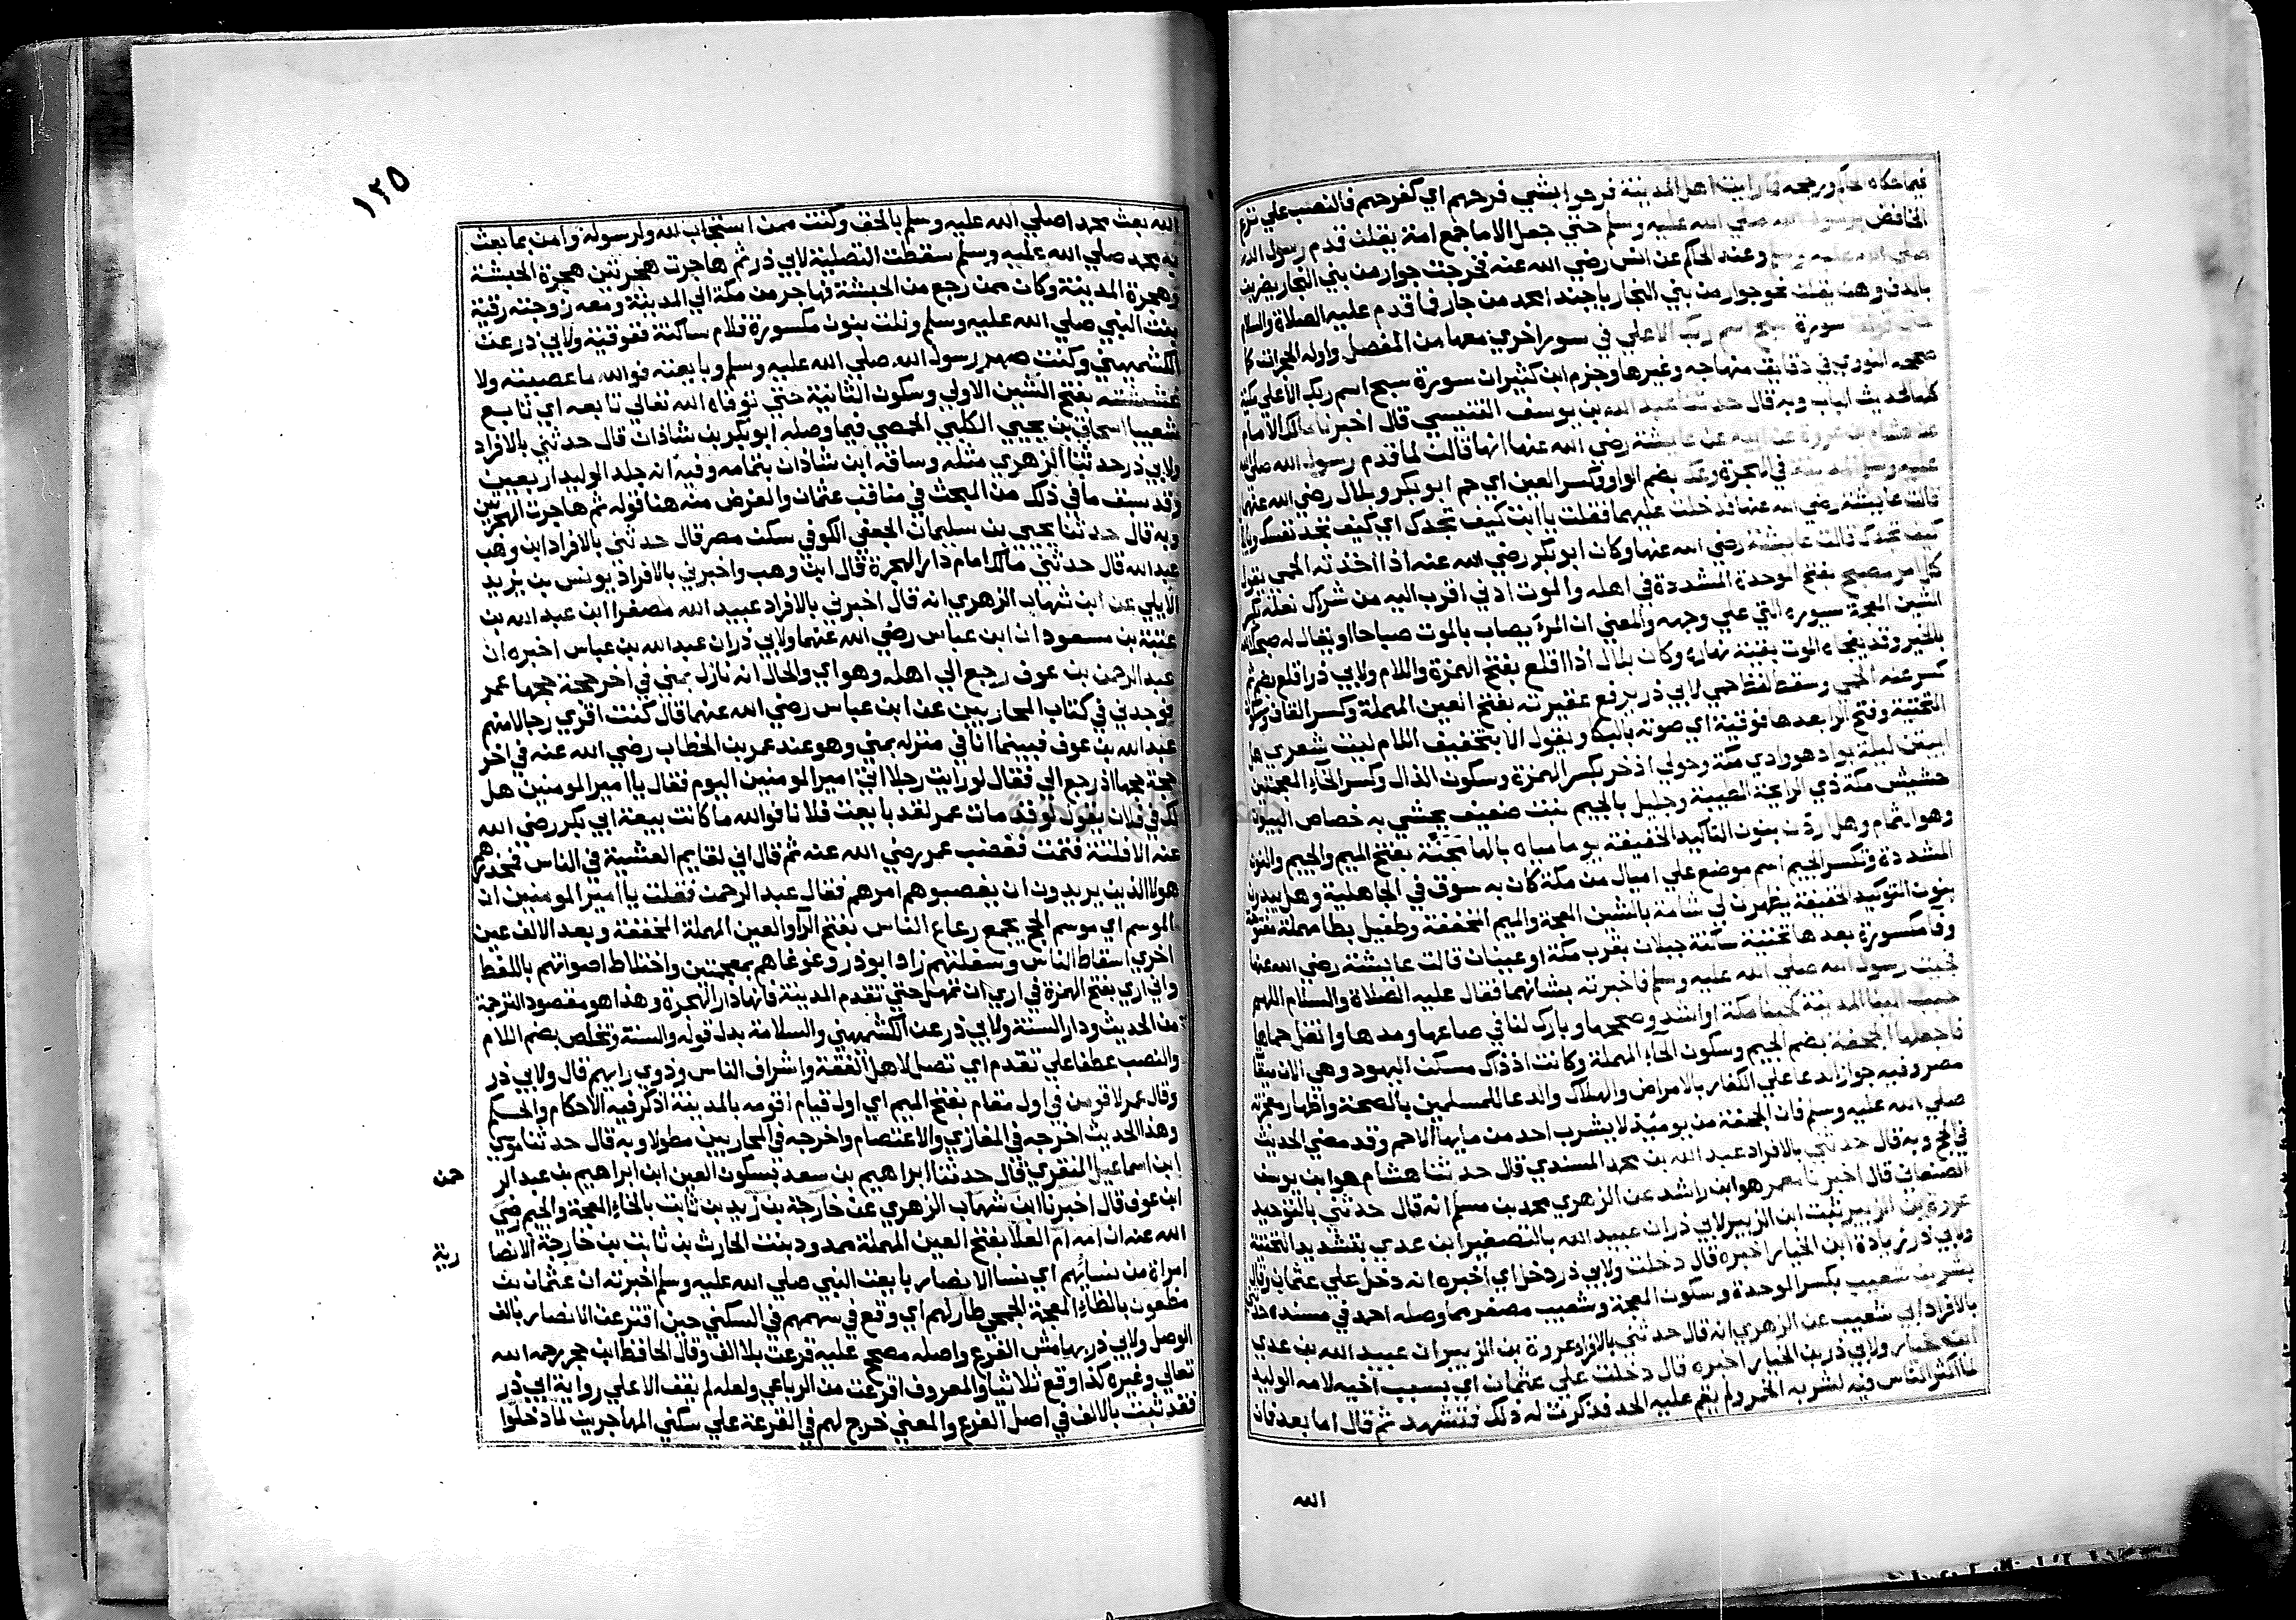 فيما حكاه الحاكم ورجحه فما رايت اهل المدينة فرحوا بشي فرحهم اي كفرحهم فالنصب علي نزع
الخافض برسول الله صلي الله عليه وسلم حتي جعل الاما جمع امة يقلن قدم رسول الله
صلي الله عليه وسلم وعند الحاكم عن انس رضي الله عنه فخرجت جوار من بني النجار يضربن
بالدف وهن يقلن نحن جوار من بني النجار يا حبذا محمد من جار فما قدم عليه الصلاة والسلام
حتي قرات سورة سبح اسم ربك الاعلي في سور اخري معها من المفصل واوله الحجرات كا
صححه النووي في دقايق منهاجه وغيرها وجزم ابن كثير ان سورة سبح اسم ربك الاعلي مكية
كلها لحديث الباب وبه قال حدثنا عبد الله بن يوسف التنيسي قال اخبرنا مالك الامام
عن هشام بن عروة عن ابيه عن عايشة رضي الله عنها انها قالت لما قدم رسول الله صلي الله
عليه وسلم المدينة في الهجرة وعك بضم الواو وكسر العين اي حم ابو بكر وبلال رضي الله عنهما
قالت عايشة رضي الله عنها فدخلت عليهما فقلت يا ابت كيف تجدك اي كيف تجد نفسك ويا بلال
كيف تجدك قالت عايشة رضي الله عنها وكان ابو بكر رضي الله عنه اذا اخذته الحمي يقول
كل امر مصبح بفتح الموحدة المشددة في اهله والموت ادني اقرب اليه من شراك نعله بكسر
الشين المعجمة سيوره التي علي وجهه والمعني ان المرء يصاب بالموت صباحا او يقال له صبحك الله
بالخير وقد يفجاه الموت بقية نهاره وكان بلال اذا اقلع بفتح الهمزة واللام ولابي ذر اقلع بضم ثم
كسر عنه الحمي وسقط لفظ الحمي لابي ذر يرفع عقيرته بفتح العين المهملة وكسر القاف وسكون
التحتية وفتح الرا بعدها فوقية اي صوته بالبكا ويقول الا بتخفيف اللام ليت شعري هل
ابيتن ليلة بواد هو وادي مكة وحولي اذخر بكسر الهمزة وسكون الذال وكسر الخاء المعجمتين
حشيش مكة ذي الرايحة الطيبة وجليل بالجيم نبت ضعيف يحشي به خصاص البيوت
وهو الثمام وهل اردن بنون التاكيد الخفيفة يوما مياه بالها مجنة بفتح الميم والجيم والنون
المشددة وتكسر الجيم اسم موضع علي اميال من مكة كان به سوق في الجاهلية وهل يبدون
بنون التوكيد الخفيفة يظهرن لي شامة بالشين المعجمة والميم المخففة وطفيل بطا مهملة مفتوحة
وفا مكسورة بعدها تحتية ساكنة جبلان بقرب مكة او عينان قالت عايشة رضي الله عنها
فجيت رسول الله صلي الله عليه وسلم فاخبرته بشانهما فقال عليه الصلاة والسلام اللهم
حبب الينا المدينة كحبنا مكة او اشد وصححها وبارك لنا في صاعها ومدها وانقل حماها
فاجعلها بالجحفة بضم الجيم وسكون الحاء المهملة وكانت اذ ذاك مسكن اليهود وهي الان ميقات
مصر وفيه جواز الدعا علي الكفار بالامراض والهلاك والدعا للمسلمين بالصحة واظهار معجزته
صلي الله عليه وسلم فان الجحفة من يوميذ لا يشرب احد من مايها الا حم وقد مضي الحديث
في الحج وبه قال حدثني بالافراد عبد الله بن محمد المسندي قال حدثنا هشام هو ابن يوسف
الصنعاني قال اخبرنا معمر هو ابن راشد عن الزهري محمد بن مسلم انه قال حدثني بالتوحيد
عروة بن الزبير ثبت ابن الزبير لابي ذر ان عبيد الله بالتصغير ابن عدي بتشديد التحتية
ولابي ذر زيادة ابن الخيار اخبره قال دخلت ولابي ذر دخل اي اخبره انه دخل علي عثمان وقال
بشر بن شعيب بكسر الموحدة وسكون المعجمة وشعيب مصغر مما وصله احمد في مسنده حدثني
بالافراد ابي شعيب عن الزهري انه قال حدثني بالافراد عروة بن الزبير ان عبيد الله بن عدي
ابن خيار ولابي ذر بن الخيار اخبره قال دخلت علي عثمان اي بسبب اخيه لامه الوليد
لما اكثر الناس فيه لشربه الخمر ولم يقم عليه الحد فذكرت له ذلك فتشهد ثم قال اما بعد فان
الله
١٢٥
الله بعث محمدا صلي الله عليه وسلم بالحق وكنت ممن استجاب لله ولرسوله وامن بما بعث
به محمد صلي الله عليه وسلم سقطت التصلية لابي ذر ثم هاجرت هجرتين هجرة الحبشة
وهجرة المدينة وكان ممن رجع من الحبشة فهاجر من مكة الي المدينة ومعه زوجته رقية
بنت النبي صلي الله عليه وسلم ونلت بنون مكسورة فلام ساكنة ففوقية ولابي ذر عن
الكشميهني وكنت صهر رسول الله صلي الله عليه وسلم وبايعته فوالله ما عصيته ولا
غششته بفتح الشين الاولي وسكون الثانية حتي توفاه الله تعالي تابعه اي تابع
شعيبا اسحاق بن يحيي الكلبي الحمصي فيما وصله ابو بكر بن شاذان قال حدثني بالافراد
ولابي ذر حدثنا الزهري مثله وساقه ابن شاذان بتمامه وفيه انه جلد الوليد اربعين
وقد سبق ما في ذلك من المبحث في مناقب عثمان والغرض منه هنا قوله ثم هاجرت الهجرتين
وبه قال حدثنا يحيي بن سليمان الجعفي الكوفي سكن مصر قال حدثني بالافراد ابن وهب
عبد الله قال حدثني مالك امام دار الهجرة قال ابن وهب واخبرني بالافراد يونس بن يزيد
الايلي عن ابن شهاب الزهري انه قال اخبرني بالافراد عبيد الله مصغرا ابن عبد الله بن
عتبة بن مسعود ان ابن عباس رضي الله عنهما ولابي ذر ان عبد الله بن عباس اخبره ان
عبد الرحمن بن عوف رجع الي اهله وهو اي والحال انه نازل بمني في اخر حجة حجها عمر
فوجدني في كتاب المحاربين عن ابن عباس رضي الله عنهما قال كنت اقري رجالا منهم
عبد الله بن عوف فبينما انا في منزله بمني وهو عند عمر بن الخطاب رضي الله عنه في اخر
حجة حجها اذ رجع الي فقال لو رايت رجلا اتي امير المومنين اليوم فقال يا امير المومنين هل
لك في فلان يقول لو قد مات عمر لقد بايعت فلانا فوالله ما كانت بيعة ابي بكر رضي الله
عنه الا فلتة فتمت فغضب عمر رضي الله عنه ثم قال اني لقايم العشية في الناس فمحذرهم
هولا الذين يريدون ان يغصبوهم امرهم فقال عبد الرحمن فقلت يا امير المومنين ان
الموسم اي موسم الحج يجمع رعاع الناس بفتح الراء والعين المهملة المخففة وبعد الالف عين
اخري اسقاط الناس وسفلتهم زاد ابو ذر وغوغاهم بمعجمتين واختلاط اصواتهم باللغط
واني اري بفتح الهمزة في اري ان تمهل حتي تقدم المدينة فانها دار الهجرة وهذا هو مقصود الترجمة
من الحديث ودار السنة ولابي ذر عن الكشميهني والسلامة بدل قوله والسنة وتخلص بضم اللام
والنصب عطفا علي تقدم اي تصل لاهل الفقه واشراف الناس وذوي رايهم قال ولابي ذر
وقال عمر لاقومن في اول مقام بفتح الميم اي اول قيام اقومه بالمدينة اذكر فيه الاحكام والحكم
وهذا الحديث اخرجه في المغازي والاعتصام واخرجه في المحاربين مطولا وبه قال حدثنا موسي
ابن اسماعيل المنقري قال حدثنا ابراهيم بن سعد بسكون العين ابن ابراهيم بن عبد الر حمن
ابن عوف قال اخبرنا ابن شهاب الزهري عن خارجة بن زيد بن ثابت بالخاء المعجمة والجيم رضي
الله عنه ان امه ام العلا بفتح العين المهملة ممدود بنت الحارث بن ثابت بن خارجة الانصا رية
امراة من نسائهم اي نسا الانصار بايعت النبي صلي الله عليه وسلم اخبرته ان عثمان بن
مظعون بالظاء المعجمة الجمحي طار لهم اي وقع في سهمهم في السكني حين اقترعت الانصار بالف
الوصل ولابي ذر بهامش الفرع واصله مصحح عليه قرعت بلا الف وقال الحافظ ابن حجر رحمه الله
تعالي وغيره كذا وقع ثلاثيا والمعروف اقرعت من الرباعي ولعله لم يقف الا علي رواية ابي ذر
فقد ثبت بالالف في اصل الفرع والمعني خرج لهم في القرعة علي سكني المهاجرين لما دخلوا